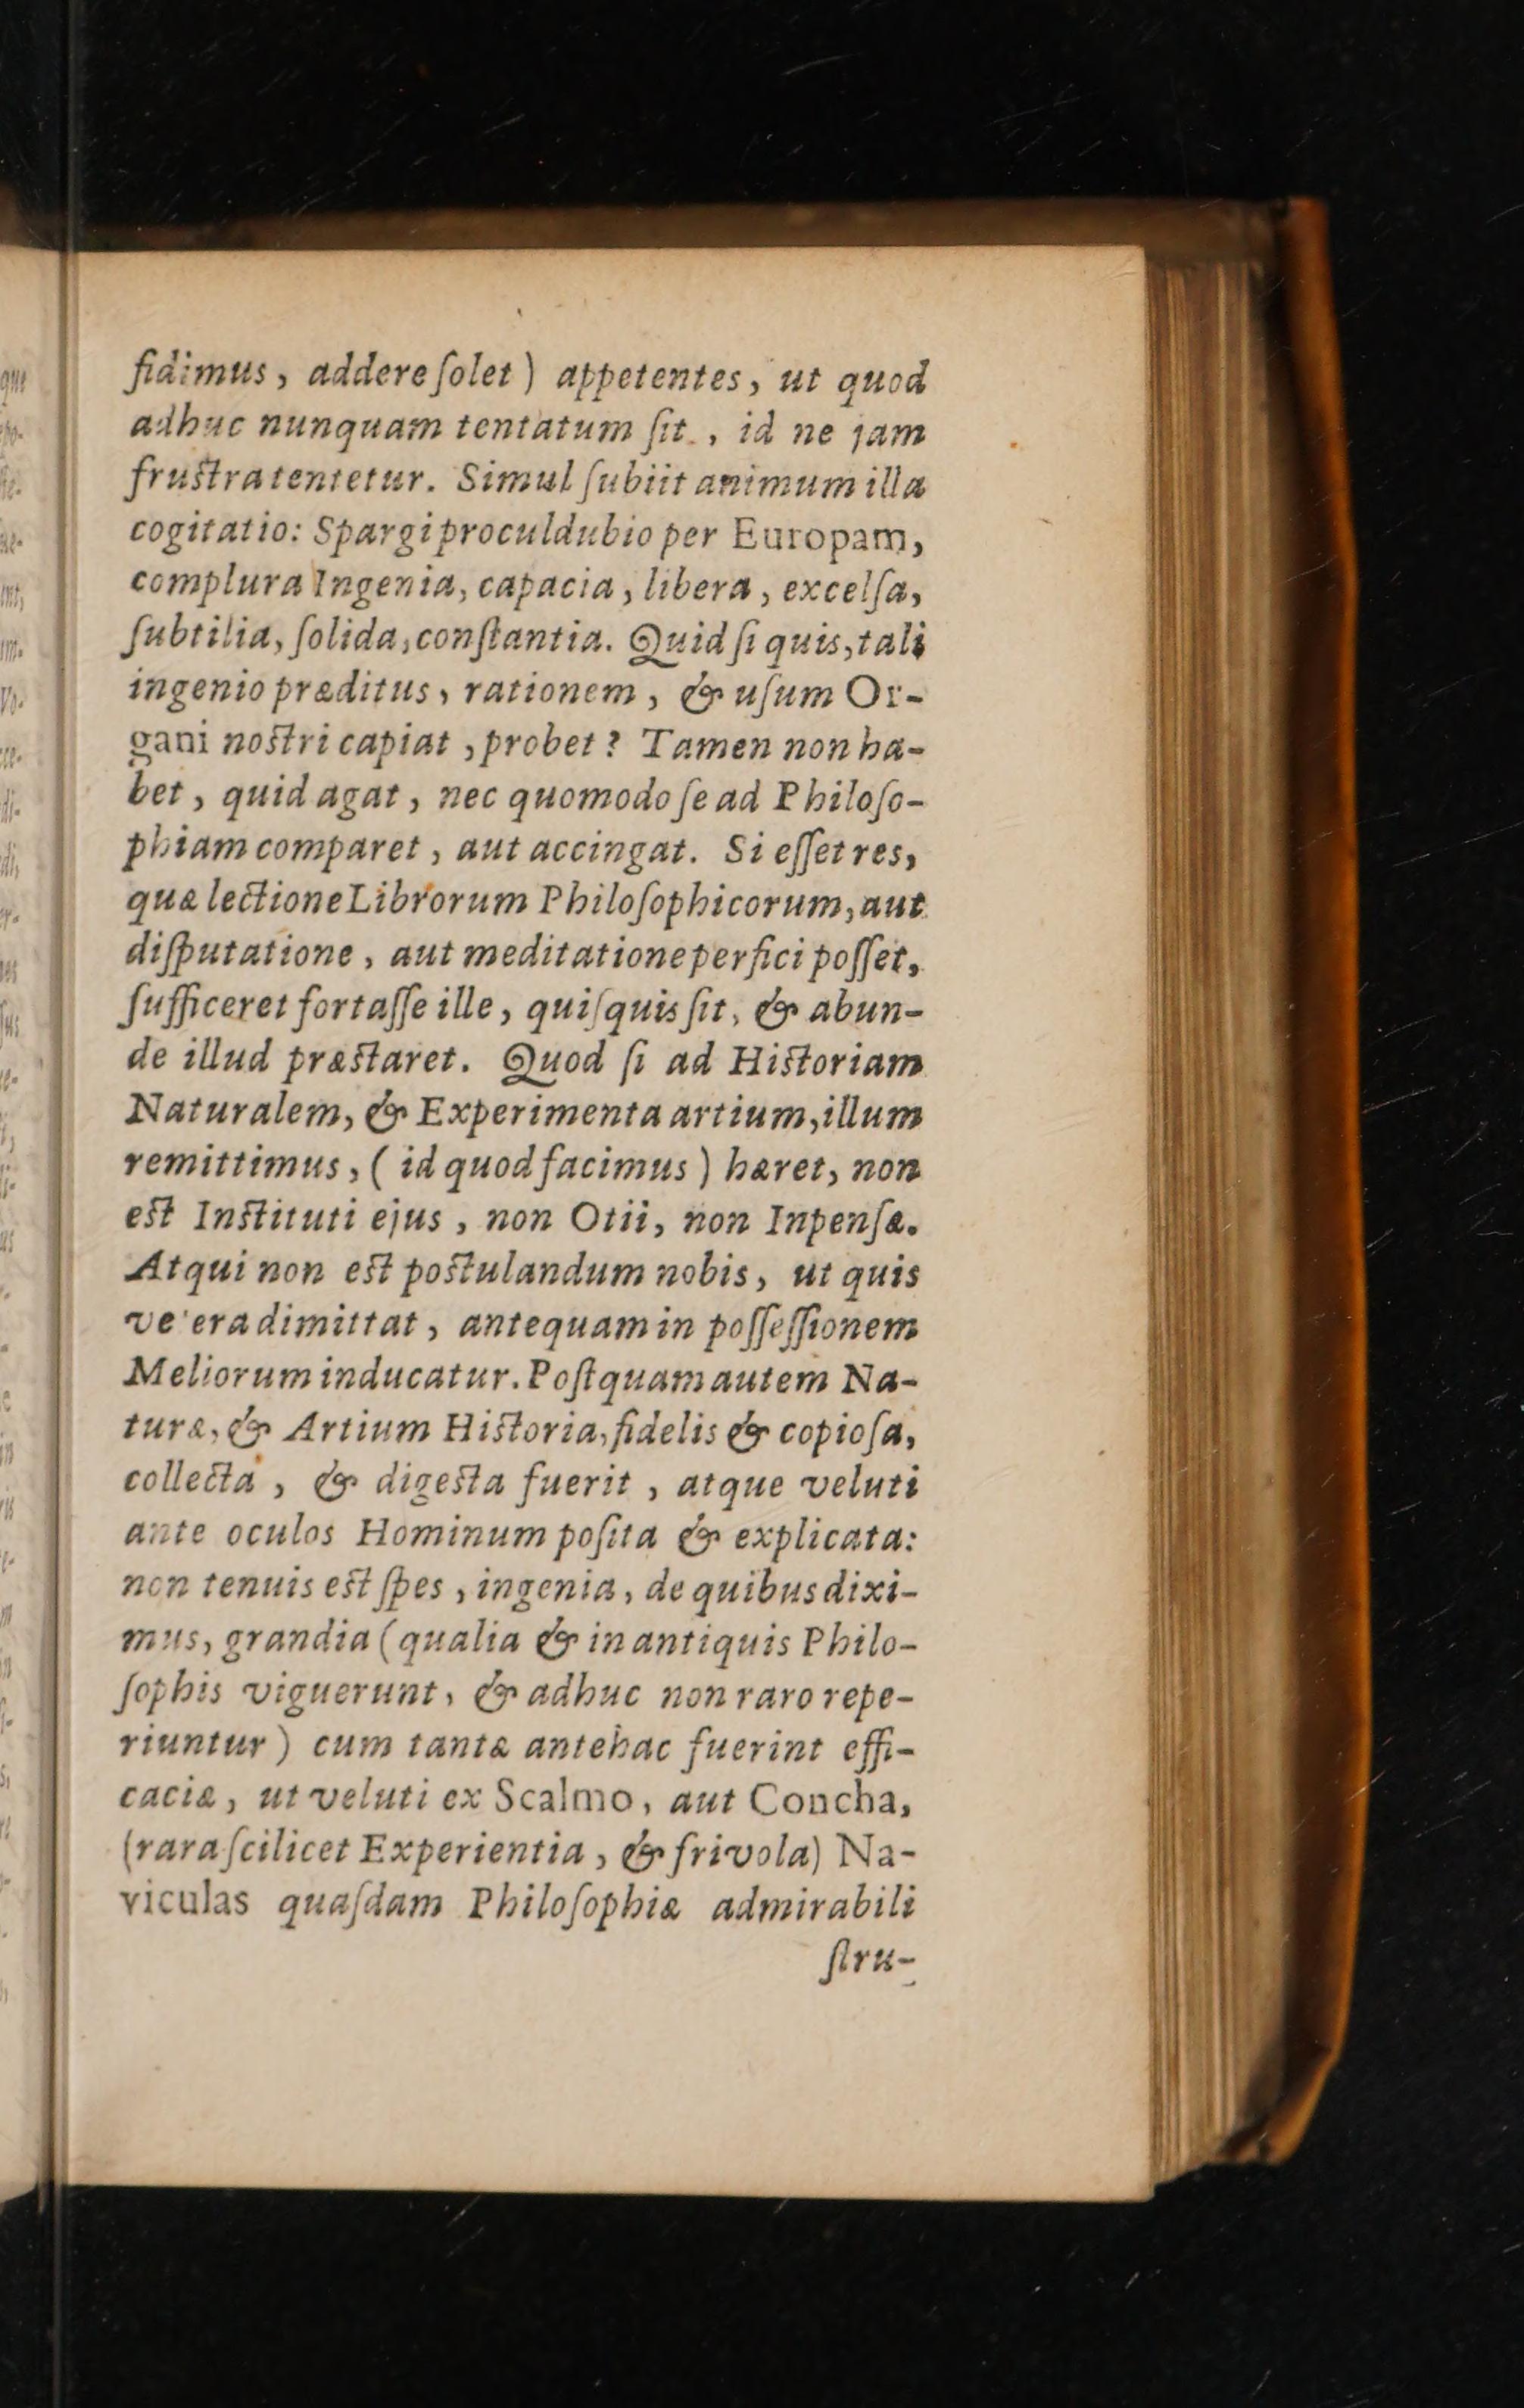 fidimus, addere ſolet) appetentes, ut quod
adhuc nunquam tentatum ſit., id ne jam
fruſtra tentetur. Simul ſubiit animum illa
cogitatio: Spargi proculdubio per Europam,
complura Ingenia, capacia, libera, excelſa,
ſubtilia, ſolida, conſtantia. Quid ſi quis, tali
ingenio præditus, rationem, & uſum Or-
gani noſtri capiat, probet? Tamen non ha-
bet, quid agat, nec quomodo ſe ad Philoſo-
phiam comparet, aut accingat. Si eſſet res,
quæ lectione Librorum Philoſophicorum, aut
diſputatione, aut meditatione perfici poſſet,
ſufficeret fortaſſe ille, quiſquis ſit, & abun-
de illud præſtaret. Quod ſi ad Hiſtoriam
Naturalem, & Experimenta artium, illum
remittimus, (id quod facimus) hæret, non
eſt Inſtituti ejus, non Otii, non Inpenſæ.
Atqui non eſt poſtulandum nobis, ut quis
ve'era dimittat, antequam in poſſeſſionem
Meliorum inducatur. Poſtquam autem Na-
turæ, & Artium Hiſtoria, fidelis & copioſa,
collecta, & digeſta fuerit, atque veluti
ante oculos Hominum poſita & explicata:
non tenuis eſt ſpes, ingenia, de quibus dixi-
mus, grandia (qualia & in antiquis Philo-
ſophis viguerunt, & adhuc non raro repe-
riuntur) cum tantæ antehac fuerint effi-
caciæ, ut veluti ex Scalmo, aut Concha,
(rara ſcilicet Experientia, & frivola) Na-
viculas quaſdam Philoſophiæ admirabili
ſtru-